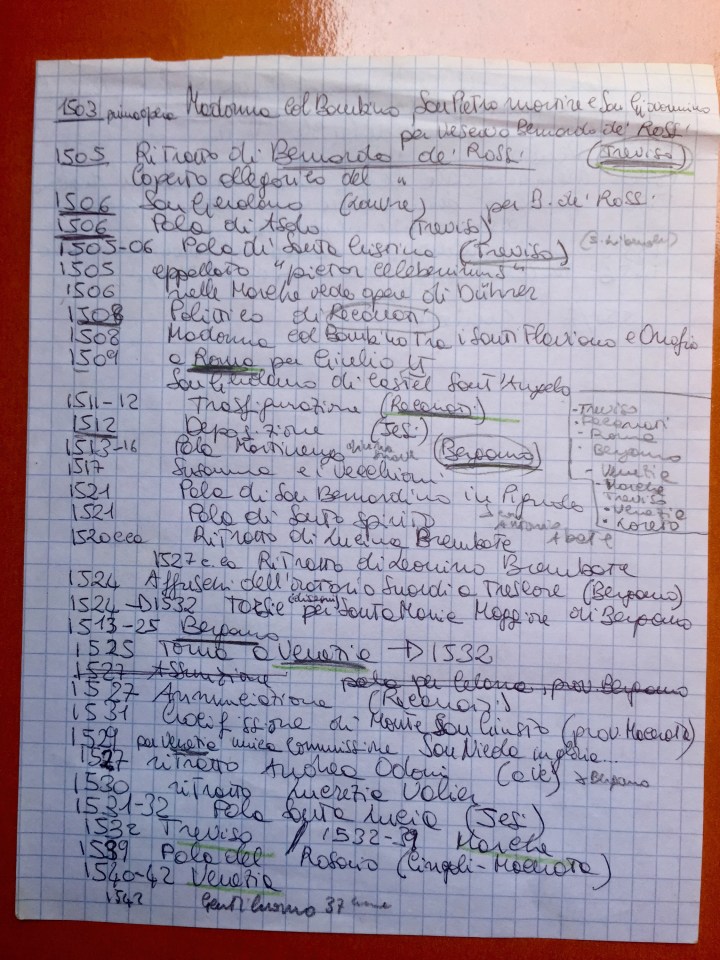 1503 prima opera Madonna col Bambino San Pietro martire e San Giovannino
per vescovo Bernardo de' Rossi
1505 Ritratto di Bernardo de' Rossi (Treviso)
Coperto allegorico del "
1506 San Girolamo (Louvre) per B. de' Rossi
1506 Pala di Asolo (Treviso)
1505-06 Pala di Santa Cristina (Treviso)
1505 appellato "pictor celeberrimus"
1506 nelle Marche vede opere di Dührer
1508 Polittico di Recanati
1508 Madonna col Bambino tra i Santi Flaviano e Onofrio
1509 a Roma per Giulio II
San Girolamo di Castel Sant'Angelo
1511-12 Trasfigurazione (Recanati)
1512 Deposizione (Jesi)
1513-16 Pala Martinengo (Bergamo)
1517 Susanna e i Vecchioni
1521 Pala di San Bernardino in Pignolo
1521 Pala di Santo Spirito
Sant'Antonio Abate
1520 cca Ritratto di Lucina Brembate
1527 c.ca Ritratto di Leonino Brembate
1524 Affreschi dell'oratorio Suardi a Trescore (Bergamo)
1524 → 1532 Tarsie (disegni) per Santa Maria Maggiore di Bergamo
1513-25 Bergamo
1525 Torna a Venezia → 1532
1527 Assunzione pala per Celana, prov. Bergamo
1527 Annunciazione (Recanati)
1531 Crocifissione di Monte San Giusto (prov. Macerata)
1529 per Venezia unica commissione San Nicola in gloria...
1527 ritratto Andrea Odoni
Bergamo
1530 ritratto Lucrezia Valier
1531-32 Pala Santa Lucia (Jesi)
1532 Treviso / 1532-39 Marche
1539 Pala del Rosario (Cingoli-Macerata)
1540-42 Venezia
1542 Gentiluomo 37 anni
- Treviso
• Recanati
- Roma
• Bergamo
- Venezia
- Marche
Treviso
• Venezia
• Loreto